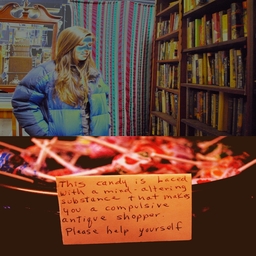 This candy is laced
with a mind-altering
substance that makes
you a compulsive
antique shopper
Please help yourself